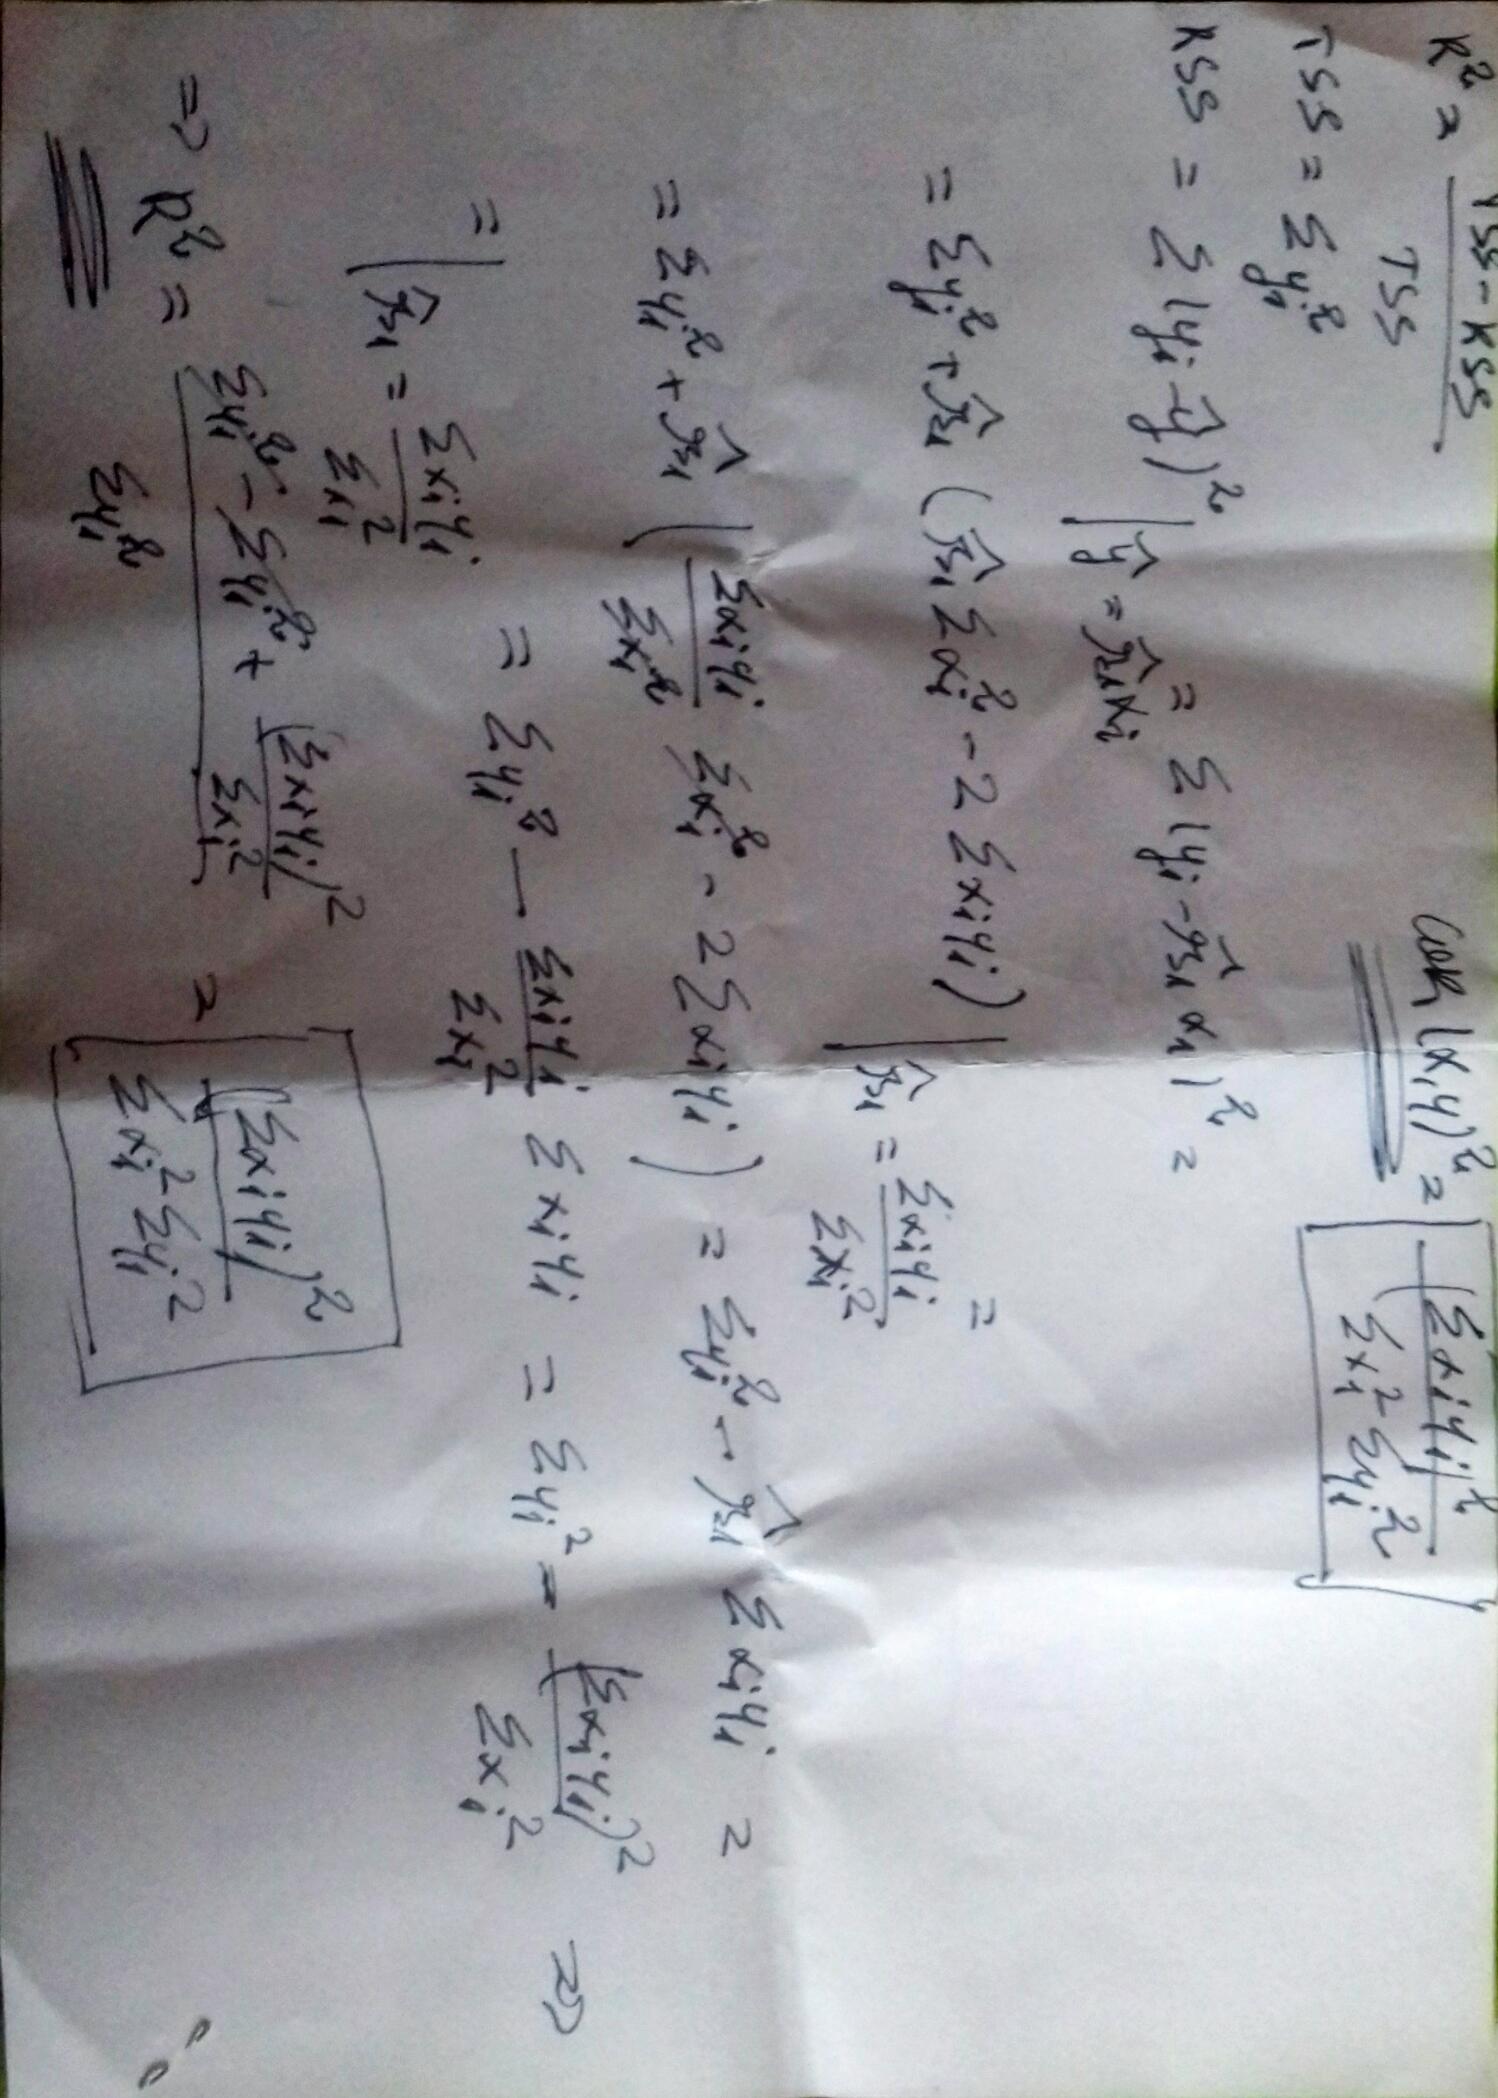 R² = (TSS - RSS) / TSS
Cor(x,y)² = (Σxiyi)² / Σxi² Σyi²
TSS = Σyi²
RSS = Σ(yi - ŷ)² | ŷ = β̂1xi = Σ(yi - β̂1x1)² =
= Σyi² + β̂1 (β̂1 Σxi² - 2 Σxiyi) | β̂1 = Σxiyi / Σxi² =
= Σyi² + β̂1 (Σxiyi / Σxi² Σxi² - 2 Σxiyi) = Σyi² - β̂1 Σxiyi =
= | β̂1 = Σxiyi / Σxi² = Σyi² - Σxiyi / Σxi² Σxiyi = Σyi² - (Σxiyi)² / Σxi² =>
=> R² = (Σyi² - Σyi² + (Σxiyi)² / Σxi²) / Σyi² = (Σxiyi)² / Σxi² Σyi²